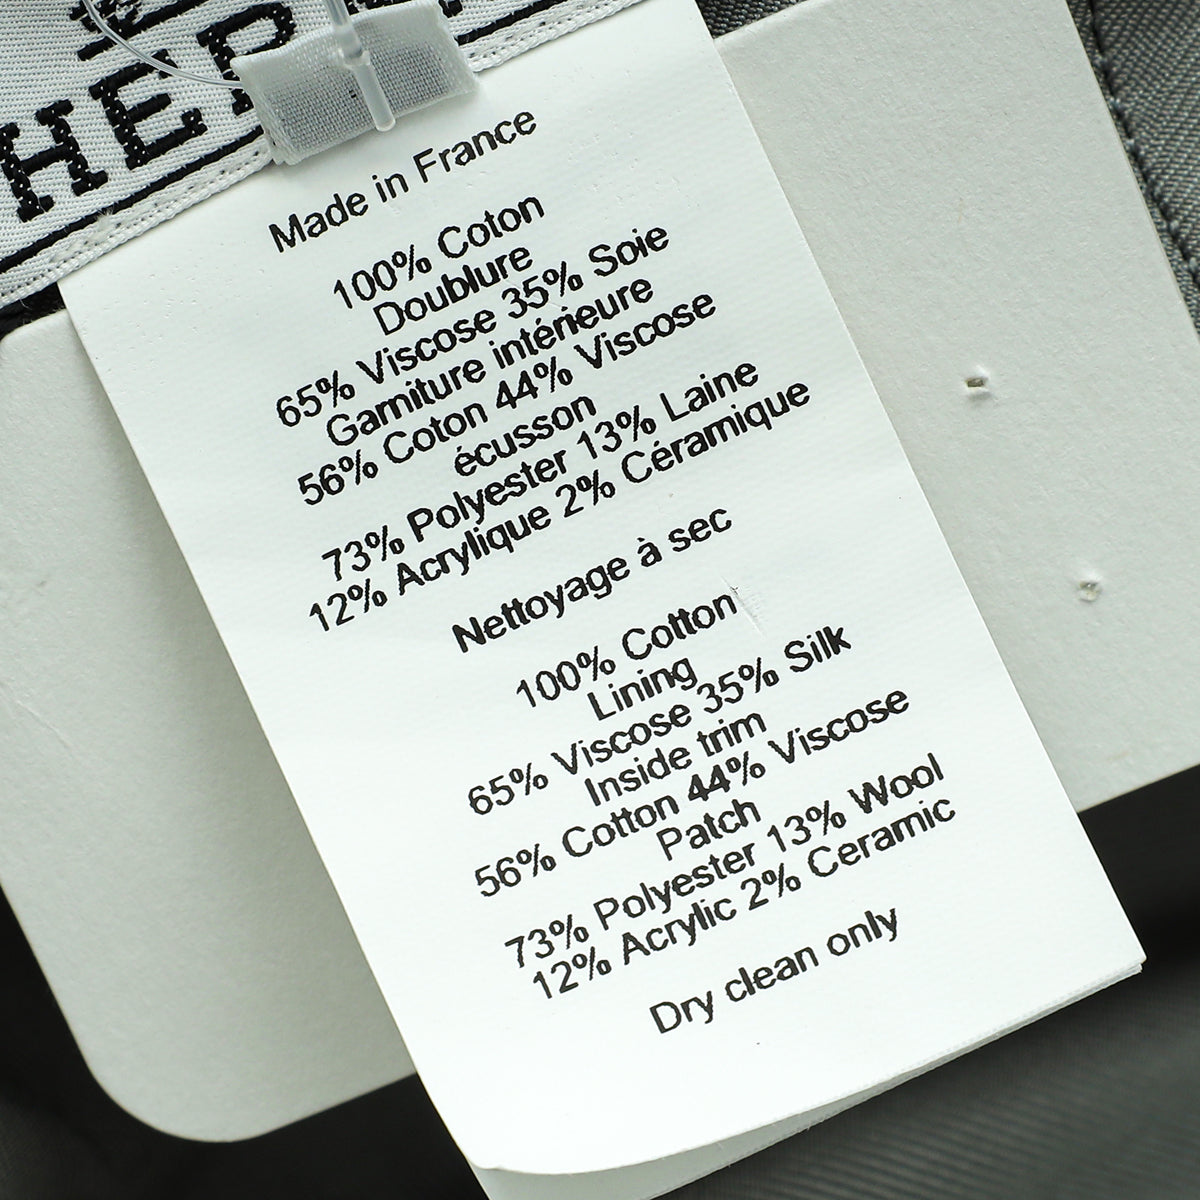 HER
Made in France
100% Coton
Doublure
65% Viscose 35% Soie
Garniture intérieure
56% Coton 44% Viscose
écusson
73% Polyester 13% Laine
12% Acrylique 2% Céramique
Nettoyage à sec
100% Cotton
Lining
65% Viscose 35% Silk
Inside trim
56% Cotton 44% Viscose
Patch
73% Polyester 13% Wool
12% Acrylic 2% Ceramic
Dry clean only